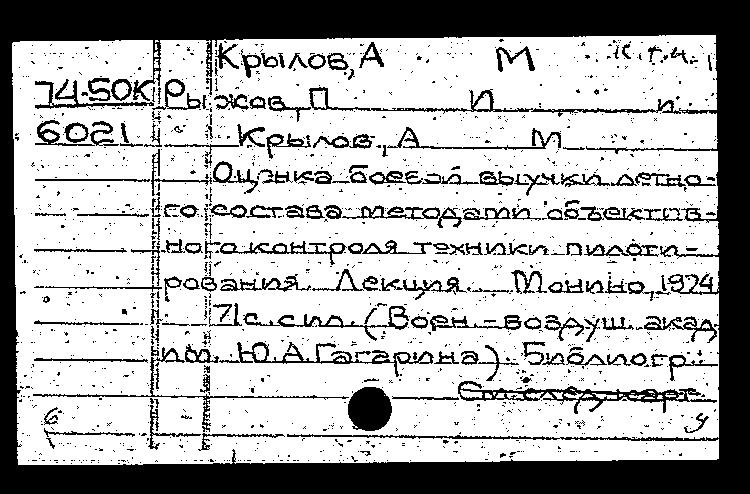 Крылов, А М К.т.н.
74-50К Рыжов, П И и
6021 Крылов, А М
Оценка боевой выучки летно-
го состава методами объектив-
ного контроля техники пилоти-
рования. Лекция. Монино, 1974
71с. с ил. (Воен.-воздуш. акад
им. Ю.А.Гагарина). Библиогр.:
См след карт
6 У